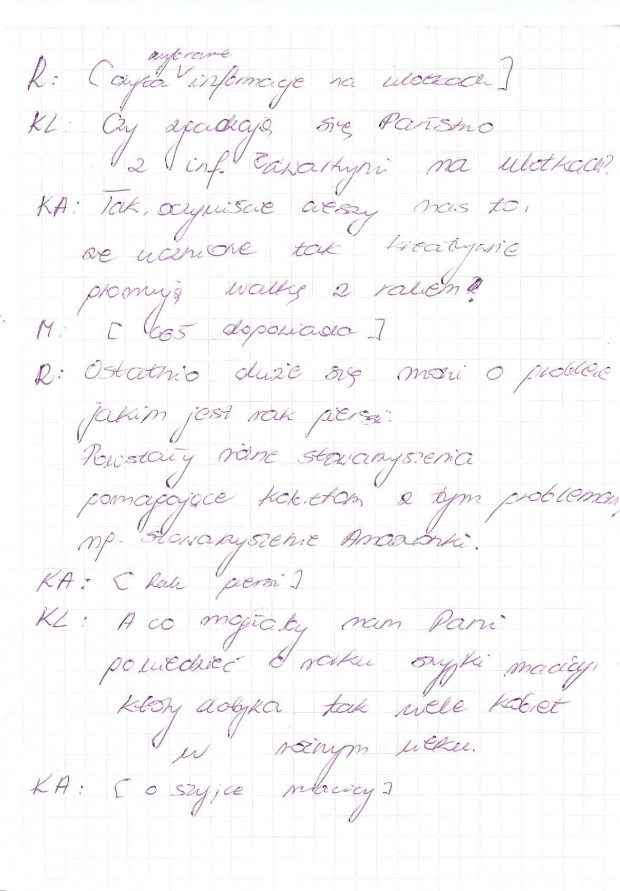 R: [czyta wybrane informacje na ulotkach]
KL: Czy zgadzają się Państwo
z inf. zawartymi na ulotkach?
KA: Tak, oczywiście cieszy nas to,
że uczniowie tak kreatywnie
promują walkę z rakiem!
M: [coś dopowiada]
R: Ostatnio dużo się mówi o problemie
jakim jest rak piersi.
Powstały różne stowarzyszenia
pomagające kobietom z tym problemem,
np. stowarzyszenie Amazonki.
KA: [rak piersi]
KL: A co mogłaby nam Pani
powiedzieć o raku szyjki macicy,
który dotyka tak wiele kobiet
w różnym wieku.
KA: [o szyjce macicy]